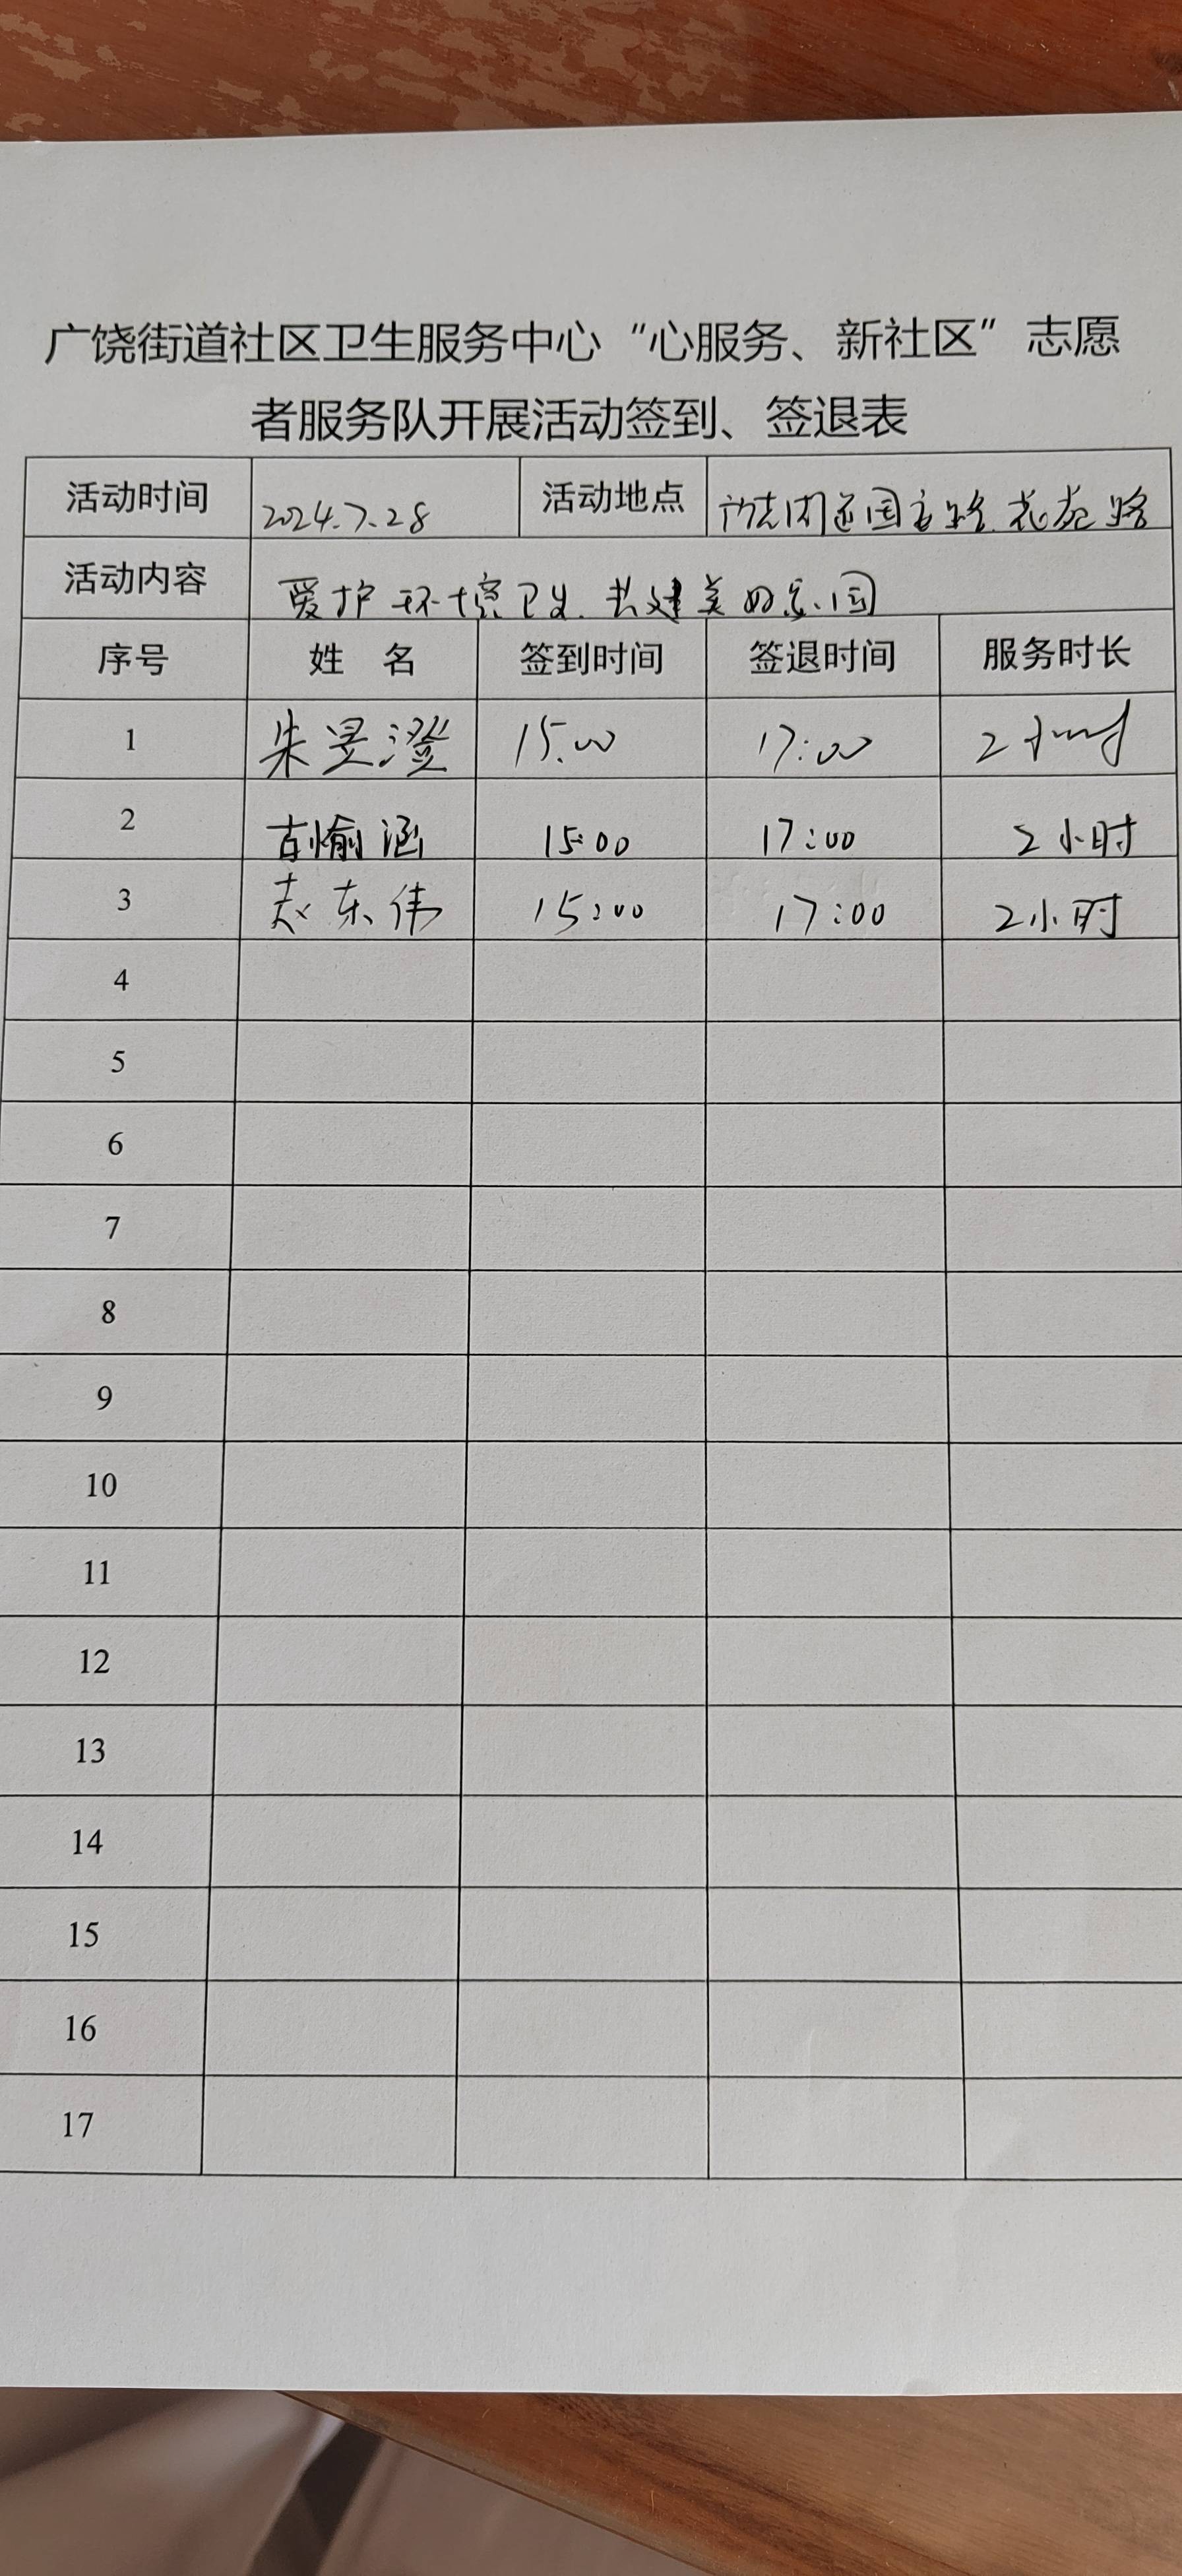 广饶街道社区卫生服务中心“心服务、新社区”志愿
者服务队开展活动签到、签退表
活动时间 2024.7.28 活动地点 花苑路
活动内容 爱护环境卫生.共建美好家园
序号 姓 名 签到时间 签退时间 服务时长
1 朱昱澄 15:00 17:00 2小时
2 古愉涵 15:00 17:00 2小时
3 赵东伟 15:00 17:00 2小时
4
5
6
7
8
9
10
11
12
13
14
15
16
17